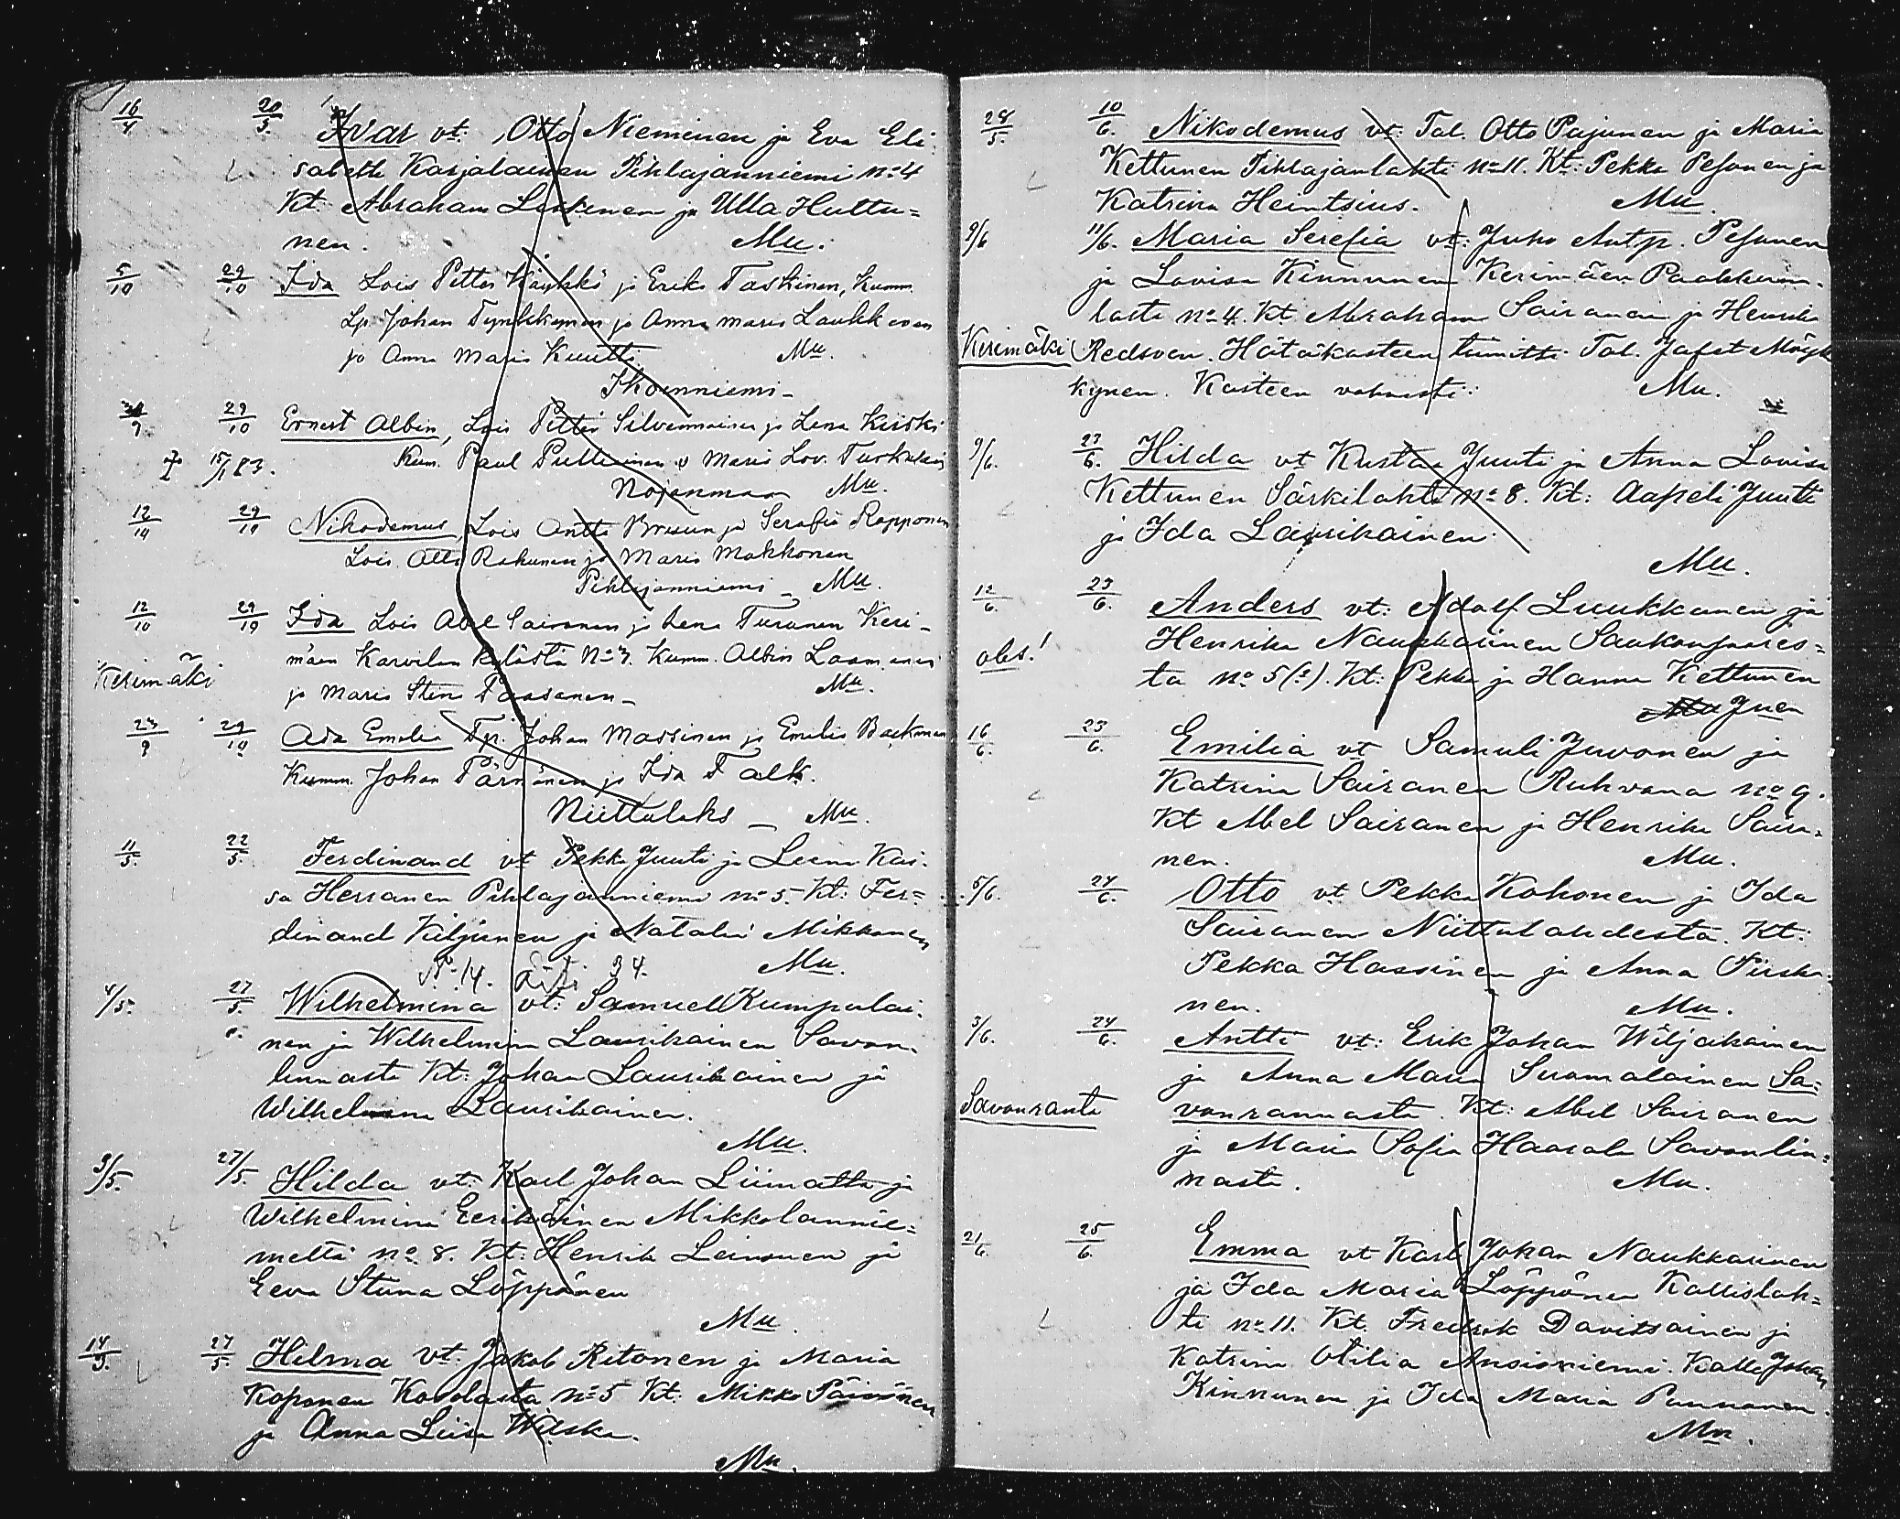 16/4 20/5. Ivar vt: Otto Nieminen ja Eva Eli-
sabeth Karjalainen Pihlajanniemi No 4
Kt: Abraham Leskinen ja Ulla Huttu=
nen. Mu.
5/10 29/10 Ida Lois Petter Käykkö ja Erika Taskinen, Kumm.
Lp. Johan Tynkkynen ja Anna Maria Laukkanen
ja Anna Maria Kuutti Mu.
Ikoinniemi -
9 29/10 Ernest Albin, Lois Petter Silvennoinen ja Lena Kiiski
15/1 83. Kum. Paul Pulliainen ja Maria Lov. Turkulain
Nojanmaa Mu.
12/10 29/10 Nikodemus, Lois Antti Bruun ja Serafia Kopponen
Lois. Otto Rahunen ja Maria Makkonen
Pihlajanniemi - Mu.
12/10 29/10 Ida Lois Abel Sairanen ja Lena Turunen Keri-
mäen Karvilan kylästä No 3. Kumm. Albin Laamanen
Kerimäki ja Maria Stina Paasonen - Mu.
23/9 29/10 Ada Emilia Tp. Johan Massinen ja Emilia Backman
Kumm. Johan Pärnänen ja Ida Falk.
Niittulaks - Mu.
11/5. 22/5. Ferdinand vt Pekka Juuti ja Leena Kai-
sa Herranen Pihlajanniemi No 5. Kt: Fer=
dinand Kiljunen ja Natalia Mikkonen
No 14. Äiti 34. Mu.
4/5. 27/5. Wilhelmina vt: Samuel Kumpulai-
nen ja Wilhelmina Laurikainen Savon-
linnasta Kt: Johan Laurikainen ja
Wilhelmina Laurikainen.
Mu.
3/5. 27/5. Hilda vt: Karl Johan Liimatta ja
Wilhelmina Eerikäinen Mikkolannie=
meltä No 8. Kt: Henrik Leinonen ja
Eeva Stiina Löppönen
Mu.
14/5. 27/5. Helma vt: Jakob Ritonen ja Maria
Koponen Kosolasta No 5 Kt: Mikko Päivinen
ja Anna Liisa Wilska.
Mu.
28/5. 10/6. Nikodemus vt: Tal. Otto Pajunen ja Maria
Kettunen Pihlajanlahti No 11. Kt: Pekka Pesonen ja
Katrina Heintsius. Mu.
9/6 11/6. Maria Serefia vt: Juho Antp. Pesonen
ja Lovisa Kinnunen Kerimäen Paakkunn-
lasta No 4. Kt. Abraham Sairanen ja Henrik
Kerimäki Redsven. Hätäkasteen toimitti Tal. Jafet Möyk
kynen. Kasteen vahvisti: Mu.
9/6. 23/6. Hilda vt Kustaa Juuti ja Anna Lovisa
Kettunen Särkilahti No 8. Kt: Aapeli Juuti
ja Ida Laurikainen.
Mu.
12/6. 23/6. Anders vt: Adolf Luukkanen ja
Henrika Naukkarinen Saukonsaares=
obs! ta No 5(?). Kt: Pekka ja Hanna Kettunen
16/6. 23/6. Emilia vt Samuli Juvonen ja
Katrina Sairanen Ruhvana No 9.
Kt Abel Sairanen ja Henrika Saira-
nen. Mu.
5/6. 24/6. Otto vt Pekka Kohonen ja Ida
Sairanen Niittulahdesta. Kt:
Pekka Hassinen ja Anna Piiska-
nen. Mu.
3/6. 24/6. Antti vt: Erik Johan Wiljakainen
ja Anna Maria Suomalainen Sa=
Savonranta vonrannasta. Kt: Abel Sairanen
ja Maria Sofia Haarala Savonlin=
nasta. Mu.
21/6. 25/6. Emma vt Karl Johan Naukkarinen
ja Ida Maria Löppönen Kallislah=
ti No 11. Kt. Fredrik Davitsainen ja
Katrina Otilia Ansioniemi. Kalle Johan
Kinnunen ja Ida Maria Paunonen.
Mu.